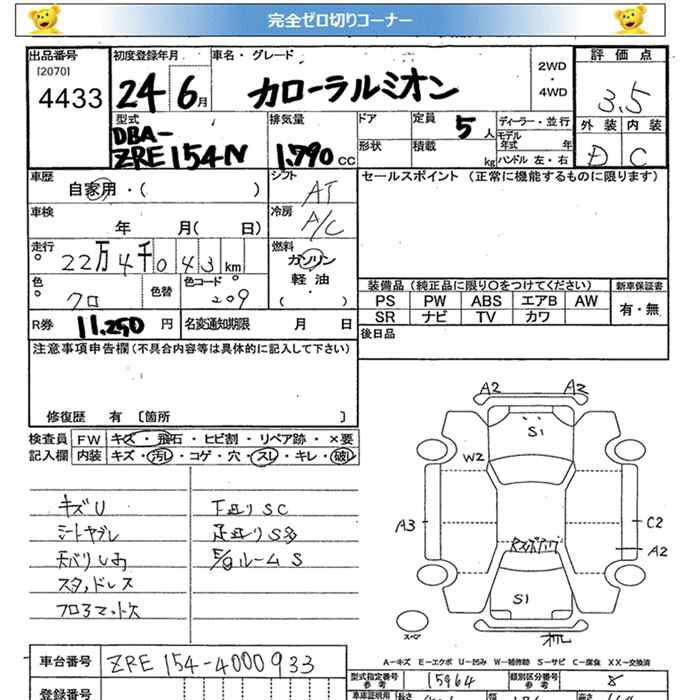 完全ゼロ切りコーナー
出品番号 初度登録年月 車名・グレード 評価点
[2070]
4433 24年6月 カローラルミオン 2WD・4WD 3.5
型式 排気量 ドア 定員 5人 ディーラー・並行 外装 内装
DBA-
ZRE154N 1.790 CC 形状 積載 kg モデル年式 年 D C
ハンドル 左・右
車歴 自家用・( ) シフト AT セールスポイント (正常に機能するものに限ります)
車検 年 月( 日) 冷房 A/C
走行 22万4千043km 燃料 ガソリン
軽油
( )
色 クロ 色替 色コード 209
装備品 (純正品に限り○をつけてください) 新車保証書
PS PW ABS エアB AW 有・無
SR ナビ TV カワ
R券 11.250円 名変通知期限 月 日 後日品
注意事項申告欄(不具合内容等は具体的に記入して下さい)
修復歴 有 〔箇所 〕
検査員 FW キズ・飛石・ヒビ割・リペア跡・×要
記入欄 内装 キズ・汚レ・コゲ・穴・スレ・キレ・破レ
キズU 下回りSC
シートヤブレ 足回りS多
天バリ E/gルームS
スタッドレス
フロアマット欠
A2 A2
S1
W2
A3 C2
A2
S1
スペア
A-キズ E-エクボ U-凹み W-補修跡 S-サビ C-腐食 XX-交換済
車台番号 ZRE154-4000933
型式指定番号 参考 15964 類別区分番号 参考 8
登録番号 車庫証明用 長さ 幅 高さ